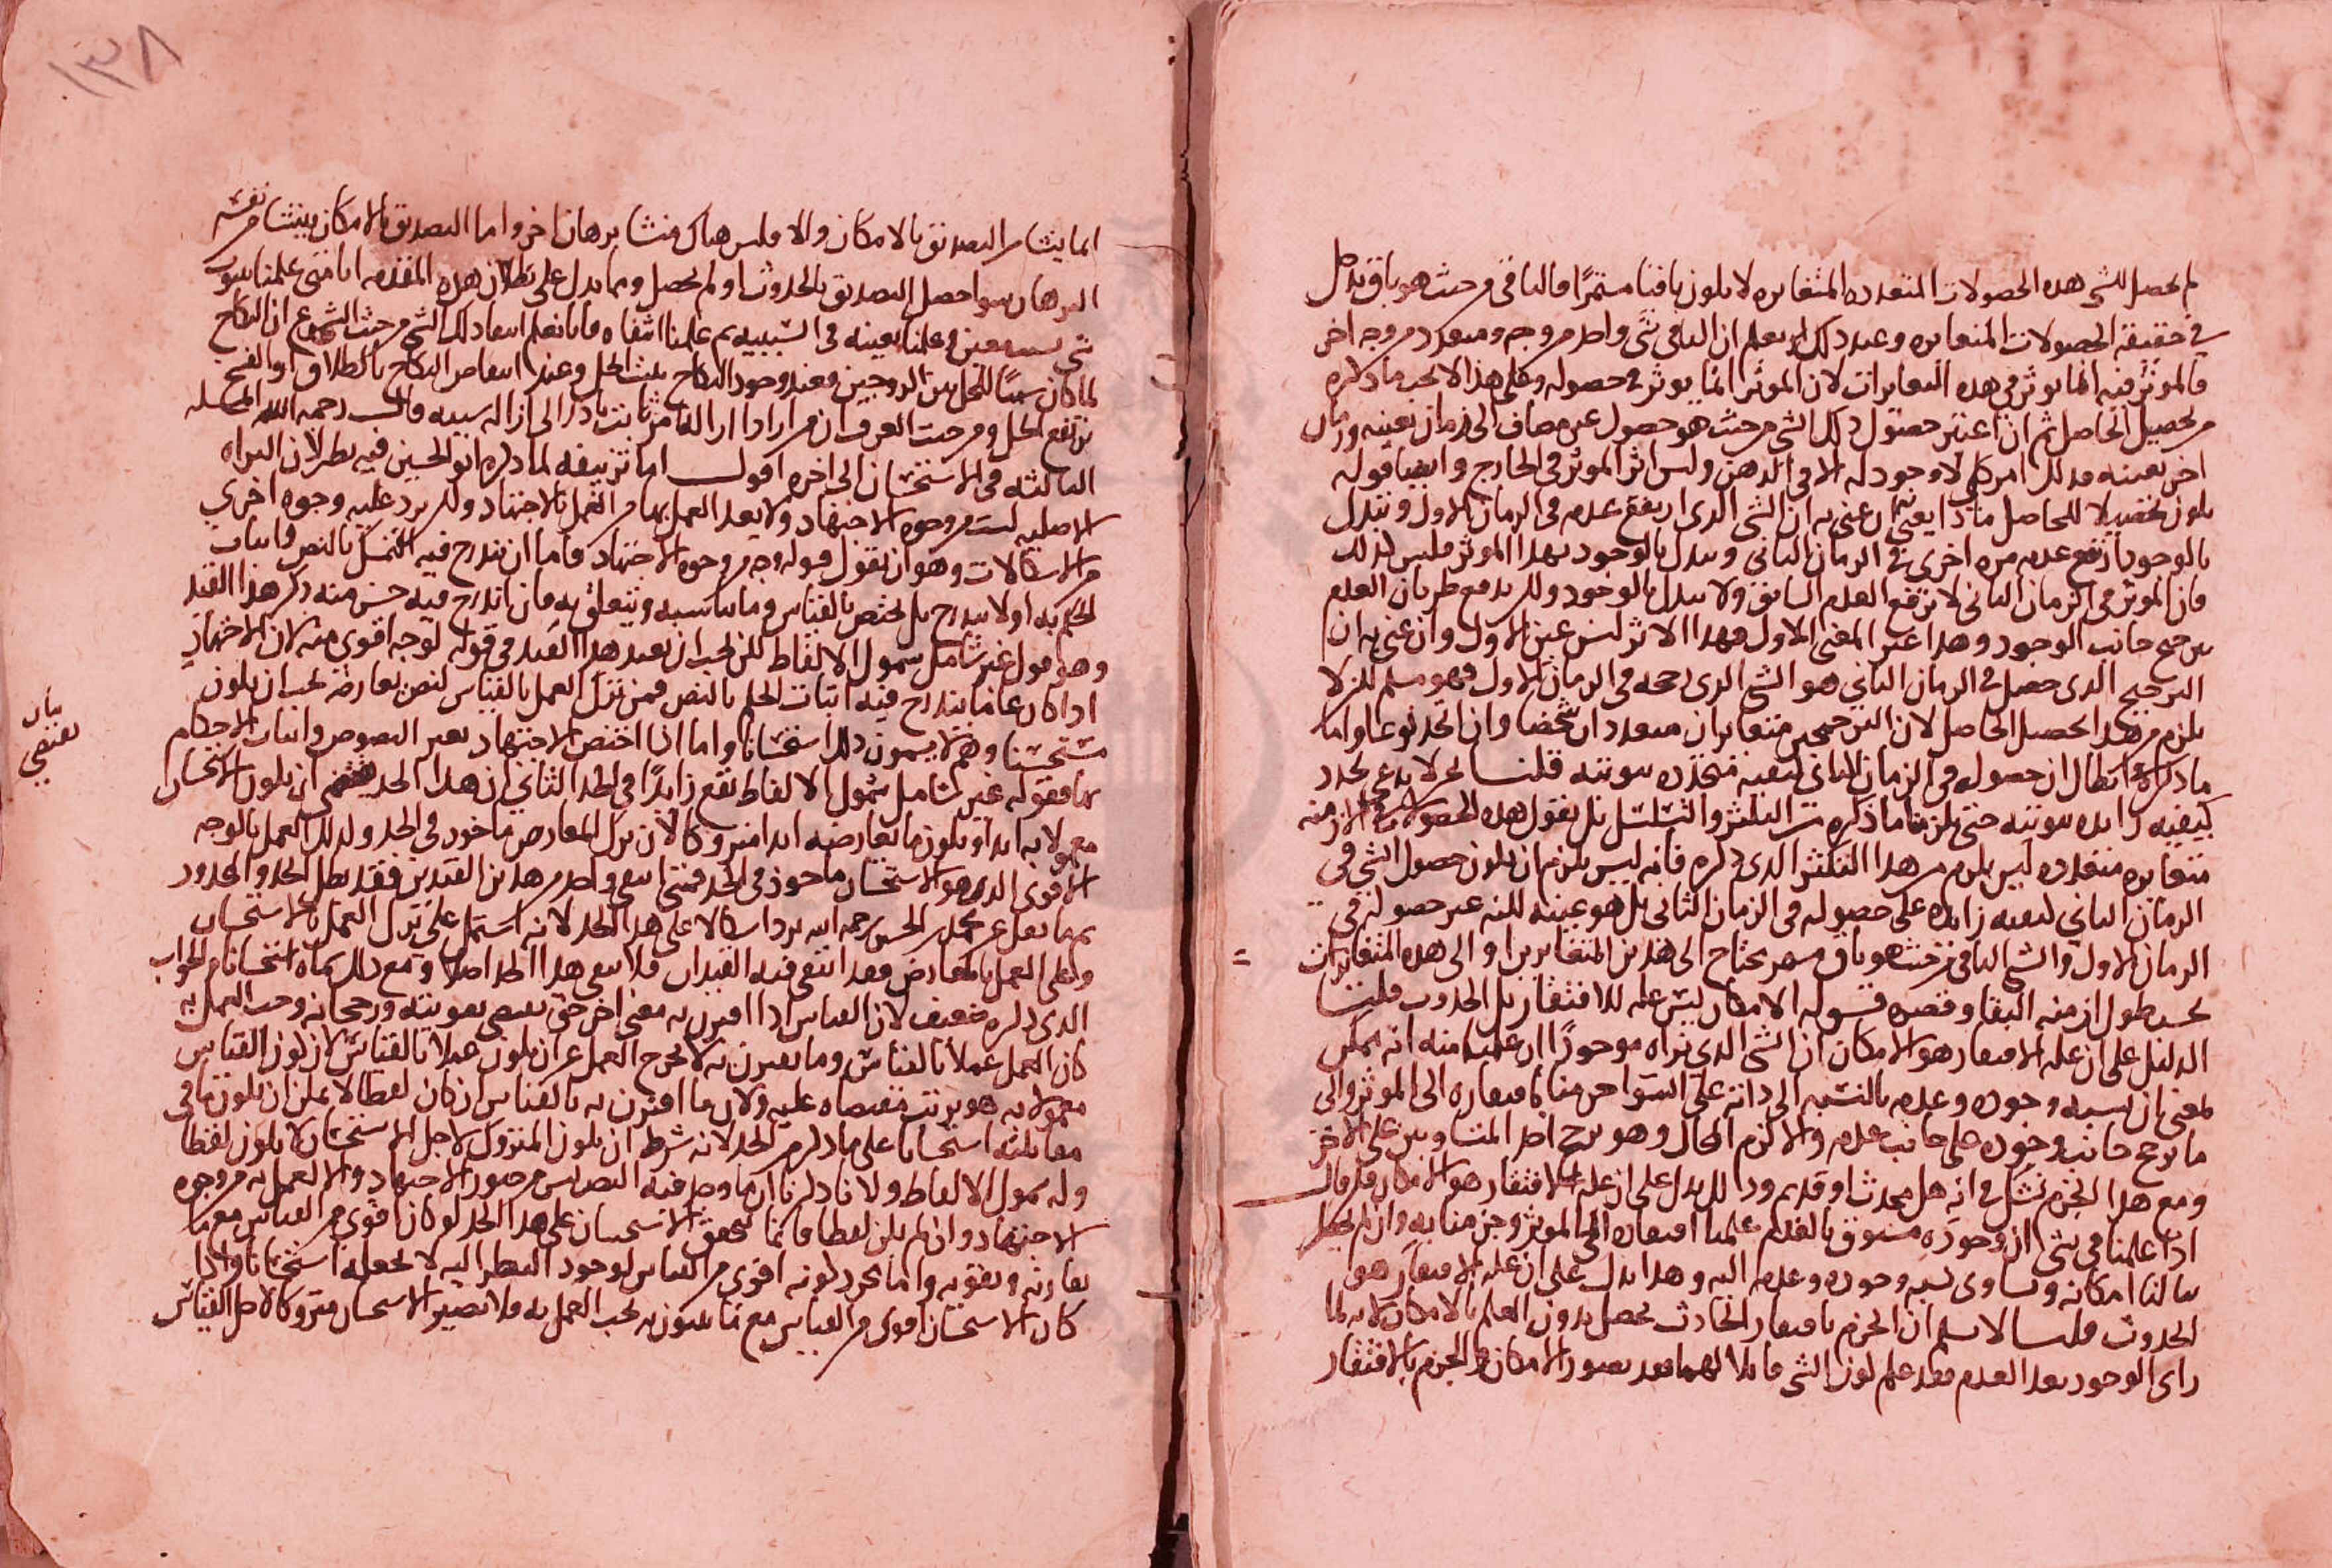 لم يحصل للشي هذه الحصولات المتعدده المتغايره لا يكون باقيا مستمرا فالباقي من حيث هو باق يدخل
في حقيقته الحصولات المتغايره وعند ذلك يعلم ان الباقي شي واحد من وجه ومتعدد من وجه اخر
فالموثر فيه انما يوثر في هذه المتغايرات لان الموثر انما يوثر في حصوله وعلى هذا لا يجب ما ذكره
من تحصيل الحاصل ثم ان اعتبر حصول ذلك الشي من حيث هو حصول غير مضاف الى زمان بعينه وزمان
اخر بعينه فذلك امر كلي لا وجود له الا في الذهن وليس اثر الموثر في الخارج وايضا قوله
يكون تحصيلا للحاصل ماذا يعني به ان عنى به ان الشي الذي ارتفع عدمه في الزمان الاول وتبدل
بالوجود ارتفع عدمه مره اخرى في الزمان الثاني وتبدل بالوجود بهذا الموثر فليس كذلك
فان الموثر في الزمان الثاني لا يرفع العدم السابق ولا يبدل بالوجود ولكن يدفع طريان العدم
يترجح جانب الوجود وهذا غير المعنى الاول فهذا الاثر ليس عين الاول وان عنى به ان
الترجيح الذي حصل في الزمان الثاني هو الشي الذي رجحه في الزمان الاول فهو مسلم لكن لا
يلزم من هذا تحصيل الحاصل لان الترجيحين متغايران متعددان شخصا وان اتحد نوعا واما
ما ذكره في ابطال ان حصوله في الزمان الثاني كيفيه متجدده ثبوتيه قلنا نحن لا ندعي تجدد
كيفيه زايده ثبوتيه حتى يلزمنا ما ذكره من التكثر والتسلسل بل نقول هذه الحصولات في الازمنه
متغايره متعدده ليس يلزم من هذا التكثر الذي ذكره فانه ليس يلزم ان يكون حصول الشي في
الزمان الثاني كيفيه زايده على حصوله في الزمان الثاني بل هو عينه لكنه غير حصوله في
الزمان الاول والشي الباقي من حيث هو باق يحتاج الى هذين المتغايرين او الى هذه المتغايرات
بحسب طول ازمنه البقا وقصره قوله الامكان ليس عله للافتقار بل الحدوث قلنا
الدليل على ان عله الافتقار هو الامكان ان الشي الذي نراه موجودا ان علمنا منه انه ممكن
بمعنى ان نسبه وجوده وعدمه بالنسبه الى ذاته على السوا جزمنا بافتقاره الى الموثر والى
ما يرجح جانب وجوده على جانب عدمه والا لزم المحال وهو ترجح احد المتساويين على الاخر
ومع هذا الجزم نشك في انه هل محدث او قديم وذلك يدل على ان عله الافتقار هو الامكان فان قال
اذا علمنا في شي ان وجوده مسبوق بالعدم علمنا افتقاره الى الموثر وجزمنا به وان لم يخطر
ببالنا امكانه وتساوي نسبه وجوده وعدمه اليه وهذا يدل على ان عله الافتقار هو
الحدوث قلنا لا نسلم ان الجزم بافتقار الحادث يحصل بدون العلم بالامكان لانه لما
راى الوجود بعد العدم فقد علم كون الشي قابلا لهما فقد تصور الامكان والجزم بالافتقار
١٣٨
انما ينشا من التصديق بالامكان والا فليس هناك منشا برهان اخر واما التصديق بالامكان فينشا من نفسه
البرهان سوا حصل التصديق بالحدوث او لم يحصل ومما يدل على بطلان هذه المقدمه انا متى علمنا ثبوت
شي بسبب معين وعلمنا تعينه في السببيه ثم علمنا انتفاه فانا نعلم انتفا ذلك الشي من حيث الشرع ان النكاح
لما كان سببا للحل بين الزوجين فعند وجود النكاح يثبت الحل وعند انتفا النكاح بالطلاق او الفسخ
يرتفع الحل ومن حيث العرف ان من اراد ازاله امر ثابت بادر الى ازاله سببه قال رحمه الله المسله
الثالثه في الاستحسان الى اخره اقول اما تزييفه لما ذكره ابو الحسين فيه نظر لان البراه
الاصليه ليست من وجوه الاجتهاد ولا يعد العمل بها من العمل بالاجتهاد ولكن يرد عليه وجوه اخرى
من الاشكالات وهو ان نقول قوله وجه من وجوه الاجتهاد فاما ان يندرج فيه التمسك بالنص واثبات
الحكم به او لا يندرج بل يختص بالقياس وما يناسبه ويتعلق به فان اندرج فيه حسن منه ذكر هذا القيد
وهو قوله غير شامل شمول الالفاظ لكن يجب ان يعيد هذا القيد في قوله لوجه اقوى منه لان الاجتهاد
اذا كان عاما يندرج فيه اثبات الحكم بالنص فمن ترك العمل بالقياس لنص يعارضه يجب ان يكون
مستحسنا وهم لا يسمون ذلك استحسانا واما اذا اختص الاجتهاد بغير النصوص واثبات الاحكام
بها فقوله غير شامل شمول الالفاظ يقع زايدا في الحد الثاني ان هذا الحد يقتضي ان يكون الاستحسان
معمولا به ابدا ويكون ما يعارضه ابدا متروكا لان ترك المعارض ماخوذ في الحد وكذلك العمل بالوجه
الاقوى الذي هو الاستحسان ماخوذ في الحد فمتى انتفى واحد من هذين القيدين فقد بطل الحد والمحدود
ثم ما نقل عن محمد بن الحسن رحمه الله يرد اشكالا على هذا الحد لانه اشتمل على ترك العمل بالاستحسان
وعلى العمل بالمعارض فقد انتفى فيه القيدان فلا يبقى هذا الحد اصلا ومع ذلك سماه استحسانا والجواب
الذي ذكره ضعيف لان القياس اذا اقترن به معنى اخر حتى يقتضي تقويته ورجحانه وجب العمل به
كان العمل عملا بالقياس وما يقترن به لا يخرج العمل عن ان يكون عملا بالقياس لان كون القياس
معمولا به هو مقتضاه عليه ولان ما اقترن به بالقياس ان كان لفظا لا يمكن ان يكون ما في
مقابلته استحسانا على ما ذكر من الحد لانه شرط ان يكون المتروك لاجل الاستحسان لا يكون لفظا
وله شمول الالفاظ ولانا ذكرنا ان ما وجد فيه النص ليس من صور الاجتهاد والا العمل به من وجوه
الاجتهاد وان لم يكن لفظا فانما يتحقق الاستحسان على هذا الحد لو كان اقوى من القياس مع ما
يقارنه ويقويه واما مجرد كونه اقوى من القياس لوجود النظر اليه لا يجعله استحسانا واذا
كان الاستحسان اقوى من القياس مع ما يقترن به يجب العمل به فلا يصير الاستحسان متروكا لاجل القياس
بيان
يقتضي